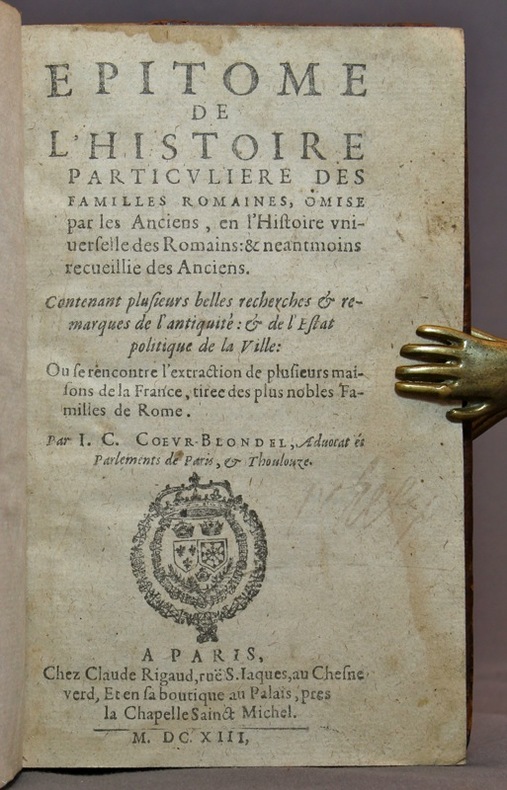 EPITOME
DE
L'HISTOIRE
PARTICVLIERE DES
FAMILLES ROMAINES, OMISE
par les Anciens, en l'Histoire vni-
uerselle des Romains:& neantmoins
recueillie des Anciens.
Contenant plusieurs belles recherches & re-
marques de l'antiquité: & de l'Estat
politique de la Ville:
Ou se rencontre l'extraction de plusieurs mai-
sons de la France, tiree des plus nobles Fa-
milles de Rome.
Par I. C. COEVR-BLONDEL, Aduocat és
Parlements de Paris, & Thoulouze.
A PARIS,
Chez Claude Rigaud, ruë S. Iaques, au Chesne
verd, Et en sa boutique au Palais, pres
la Chapelle Sainct Michel.
M. DC XIII,